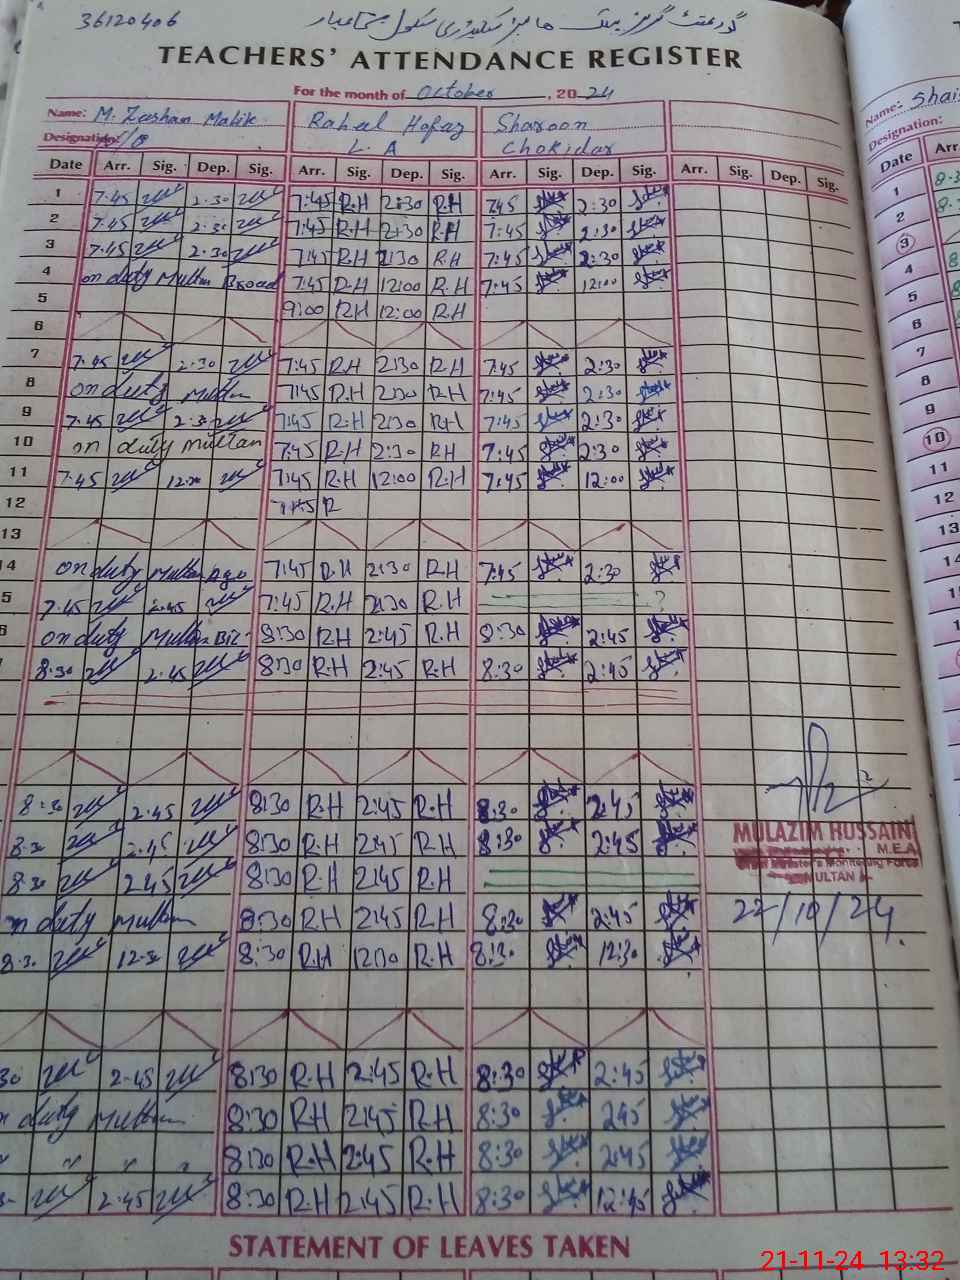 36120406 گورنمنٹ گرلز ہائیر سیکنڈری سکول
TEACHERS' ATTENDANCE REGISTER
For the month of October, 2024
Name: M. Zeeshan Malik Raheel Hafaz Sharoon
Designation: L.A Chokidar
Date Arr. Sig. Dep. Sig. Arr. Sig. Dep. Sig. Arr. Sig. Dep. Sig. Arr. Sig. Dep. Sig.
1 7.45 2.30 7:45 R.H 2:30 R.H 7:45 2:30
2 7.45 2.30 7:45 R.H 2:30 R.H 7:45 2:30
3 7.45 2.30 7:45 R.H 2:30 R.H 7:45 2:30
4 on duty Multan Broad 7:45 R.H 12:00 R.H 7:45 12:00
5 9:00 R.H 12:00 R.H
6
7 7.45 2.30 7:45 R.H 2:30 R.H 7:45 2:30
8 on duty Multan 7:45 R.H 2:30 R.H 7:45 2:30
9 7.45 2.30 7:45 R.H 2:30 R.H 7:45 2:30
10 on duty Multan 7:45 R.H 2:30 R.H 7:45 2:30
11 7.45 12.30 7:45 R.H 12:00 R.H 7:45 12:00
12 7:45 R
13
14 on duty Multan 7:45 R.H 2:30 R.H 7:45 2:30
5 7.45 2.45 7:45 R.H 2:30 R.H ?
6 on duty Multan 8:30 R.H 2:45 R.H 8:30 2:45
8:30 2.45 8:30 R.H 2:45 R.H 8:30 2:45
8:30 2.45 8:30 R.H 2:45 R.H 8:30 2:45
8:30 2.45 8:30 R.H 2:45 R.H 8:30 2:45
8:30 2.45 8:30 R.H 2:45 R.H
n duty Multan 8:30 R.H 2:45 R.H 8:30 2:45
8:30 12.30 8:30 R.H 12:30 R.H 8:30 12:30
30 2.45 8:30 R.H 2:45 R.H 8:30 2:45
n duty Multan 8:30 R.H 2:45 R.H 8:30 2:45
" " " " 8:30 R.H 2:45 R.H 8:30 2:45
2.45 8:30 R.H 2:45 R.H 8:30 12:45
MULAZIM HUSSAIN
M.E.A
Minister's Monitoring Force
MULTAN
22/10/24
STATEMENT OF LEAVES TAKEN
Name: Shais
Designation:
Date Arr.
1
2
3
4
5
6
7
8
9
10
11
12
13
14
21-11-24 13:32